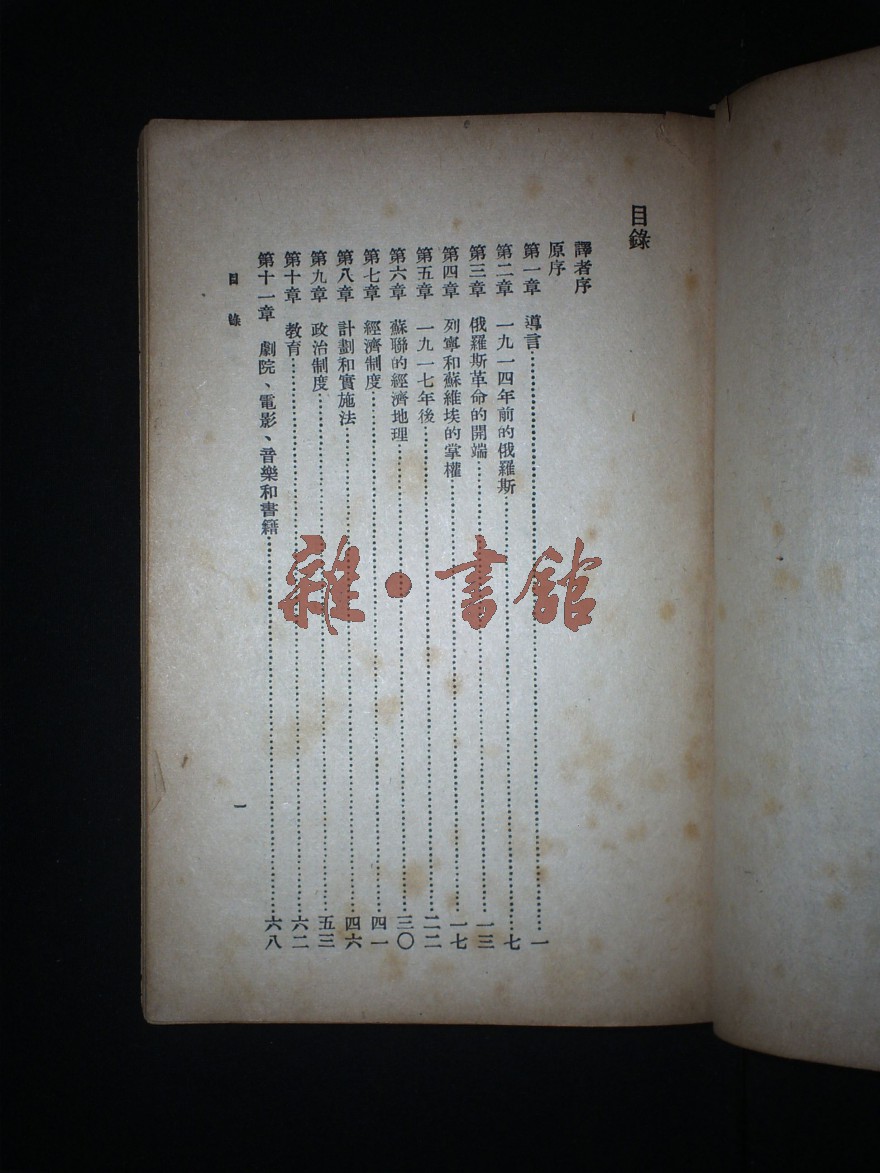 目錄
譯者序
原序
第一章 導言……一
第二章 一九一四年前的俄羅斯……七
第三章 俄羅斯革命的開端……一三
第四章 列寧和蘇維埃的掌權……一七
第五章 一九一七年後……二二
第六章 蘇聯的經濟地理……三〇
第七章 經濟制度……四一
第八章 計劃和實施法……四六
第九章 政治制度……五三
第十章 教育……六二
第十一章 劇院、電影、音樂和書籍……六八
目錄 一
雜·書館